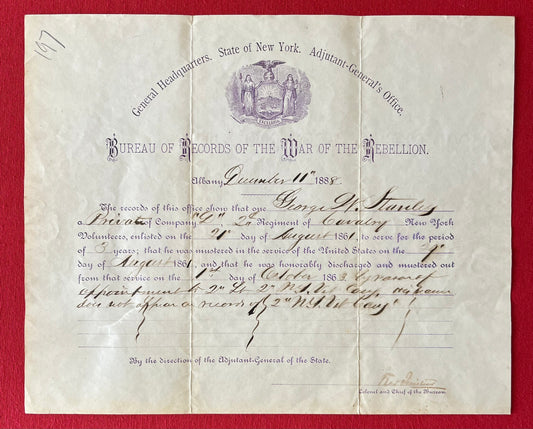 197
General Headquarters, State of New York, Adjutant-General's Office.
EXCELSIOR
BUREAU OF RECORDS OF THE WAR OF THE REBELLION.
Albany, December 11" 1888.
The records of this office show that one George W. Stanley
a Private of Company "L" 2d Regiment of Cavalry New York
Volunteers, enlisted on the 21" day of August 1861, to serve for the period
of 3 years; that he was mustered in the service of the United States on the
day of August 1861, and that he was honorably discharged and mustered out
from that service on the 1st day of October 1863, by reason of
appointment to 2" Lt 2" N.Y. Vet Cav. his name
does not appear on records of 2" N.Y. Vet Cav.
By the direction of the Adjutant-General of the State.
Colonel and Chief of the Bureau.